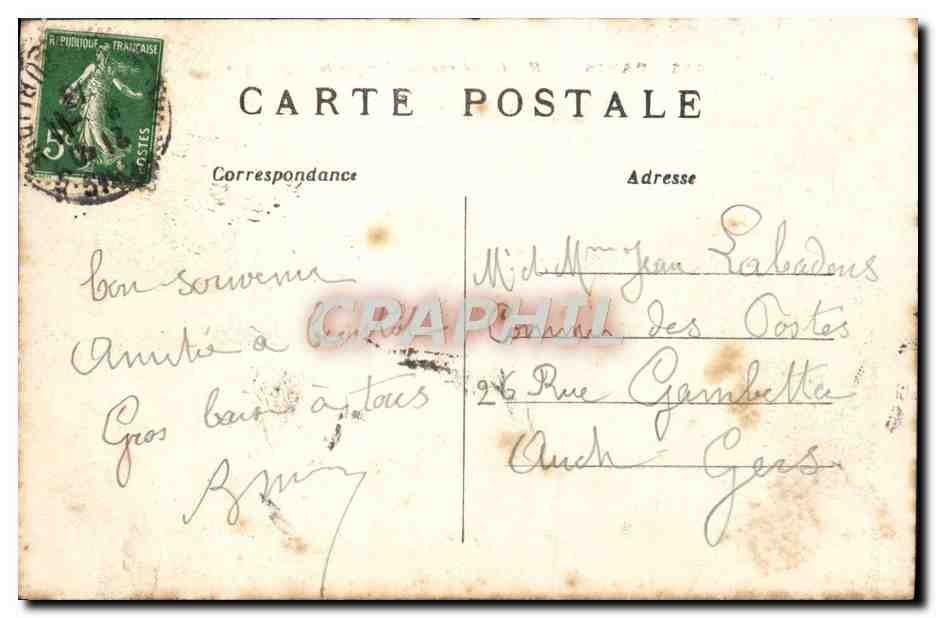 RÉPUBLIQUE FRANÇAISE
5c
POSTES
CARTE POSTALE
Correspondance
Adresse
bon souvenir
Amitié à
Gros baisers à tous
M et Mme Jean Labadens
Commis des Postes
26 Rue Gambetta
Auch Gers
CRAPHIL